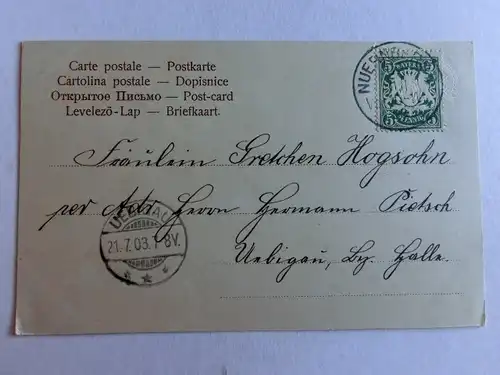 Carte postale — Postkarte
Cartolina postale — Dopisnice
Открытое Письмо — Post-card
Levelező-Lap — Briefkaart.
BAYERN
5 PFENNIG 5
Fräulein Gretchen Hogsohn
per Adr. Herrn Hermann Pietsch
Uebigau, Bz. Halle.
UEBIGAU
21.7.03.7-8V.